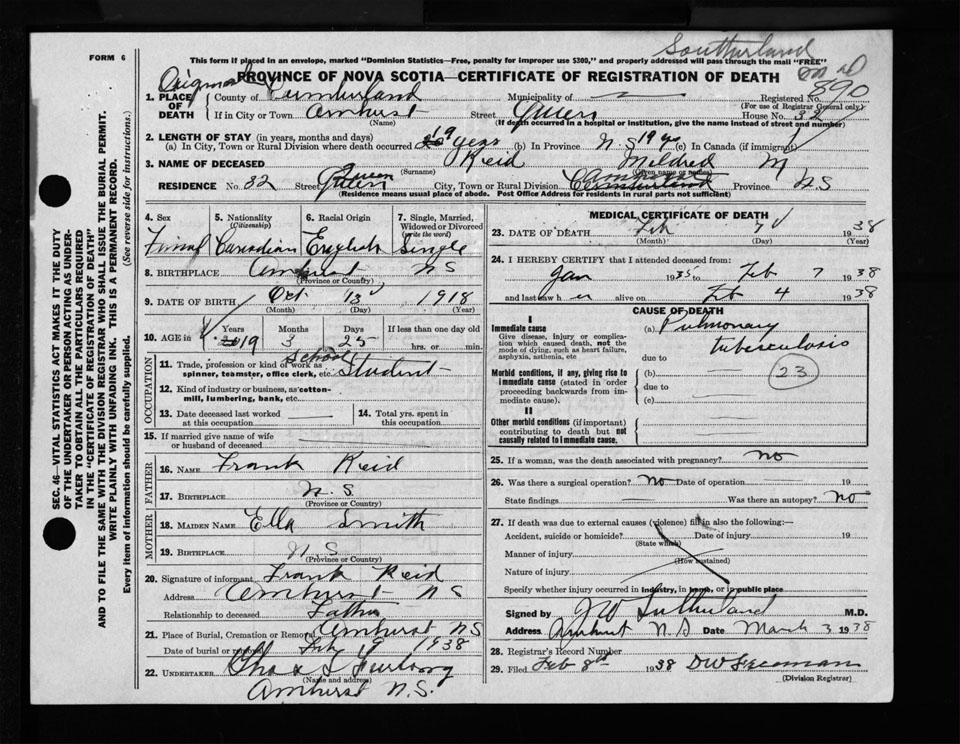 Southerland
FORM 6
This form if placed in an envelope, marked "Dominion Statistics—Free, penalty for improper use $300," and properly addressed will pass through the mail "FREE"
Original
PROVINCE OF NOVA SCOTIA—CERTIFICATE OF REGISTRATION OF DEATH
890
1. PLACE OF DEATH
County of Cumberland Municipality of — Registered No.
(For use of Registrar General only)
If in City or Town Amherst Street Queen House No. 32
(Name) (If death occurred in a hospital or institution, give the name instead of street and number)
2. LENGTH OF STAY (in years, months and days)
(a) In City, Town or Rural Division where death occurred 19 years (b) In Province N.S 19 yrs (c) In Canada (if immigrant)
3. NAME OF DECEASED Reid Mildred M
(Surname) (Given name or names)
RESIDENCE No. 32 Street Queen City, Town or Rural Division Amherst Cumberland Province N.S
(Residence means usual place of abode. Post Office Address for residents in rural parts not sufficient)
SEC. 46—VITAL STATISTICS ACT MAKES IT THE DUTY
OF THE UNDERTAKER OR PERSON ACTING AS UNDER-
TAKER TO OBTAIN ALL THE PARTICULARS REQUIRED
IN THE "CERTIFICATE OF REGISTRATION OF DEATH"
AND TO FILE THE SAME WITH THE DIVISION REGISTRAR WHO SHALL ISSUE THE BURIAL PERMIT.
WRITE PLAINLY WITH UNFADING INK. THIS IS A PERMANENT RECORD.
Every item of information should be carefully supplied. (See reverse side for instructions.)
4. Sex 5. Nationality (Citizenship) 6. Racial Origin 7. Single, Married, Widowed or Divorced (write the word)
Femal Canadian English Single
8. BIRTHPLACE Amherst NS
(Province or Country)
9. DATE OF BIRTH Oct 13 1918
(Month) (Day) (Year)
10. AGE in Years Months Days If less than one day old
19 3 25 hrs. or min.
OCCUPATION
11. Trade, profession or kind of work as spinner, teamster, office clerk, etc. School Student
12. Kind of industry or business, as cotton-mill, lumbering, bank, etc.
13. Date deceased last worked at this occupation
14. Total yrs. spent in this occupation
15. If married give name of wife or husband of deceased
FATHER
16. NAME Frank Reid
17. BIRTHPLACE N.S.
(Province or Country)
MOTHER
18. MAIDEN NAME Ella Smith
19. BIRTHPLACE N.S
(Province or Country)
20. Signature of informant Frank Reid
Address Amherst NS
Relationship to deceased Father
21. Place of Burial, Cremation or Removal Amherst NS
Date of burial or removal Feb 9 1938
22. UNDERTAKER Chas S Furlong
(Name and address)
Amherst N.S.
MEDICAL CERTIFICATE OF DEATH
23. DATE OF DEATH Feb 7 1938
(Month) (Day) (Year)
24. I HEREBY CERTIFY that I attended deceased from:
Jan 1935 to Feb 7 1938
and last saw her alive on Feb 4 1938
CAUSE OF DEATH
I
Immediate cause
Give disease, injury or complication which caused death, not the mode of dying, such as heart failure, asphyxia, asthenia, etc
(a) Pulmonary
tuberculosis
due to
Morbid conditions, if any, giving rise to immediate cause (stated in order proceeding backwards from immediate cause).
(b)
23
due to
(c)
II
Other morbid conditions (if important) contributing to death but not causally related to immediate cause.
25. If a woman, was the death associated with pregnancy? no
26. Was there a surgical operation? no Date of operation — 19
State findings — Was there an autopsy? no
27. If death was due to external causes (violence) fill in also the following:—
Accident, suicide or homicide? Date of injury 19
(State which)
Manner of injury
(How sustained)
Nature of injury
Specify whether injury occurred in industry, in home, or in public place
Signed by J W Sutherland M.D.
Address Amherst N.S Date March 3 1938
28. Registrar's Record Number
29. Filed Feb 8th 1938 DW Freeman
(Division Registrar)